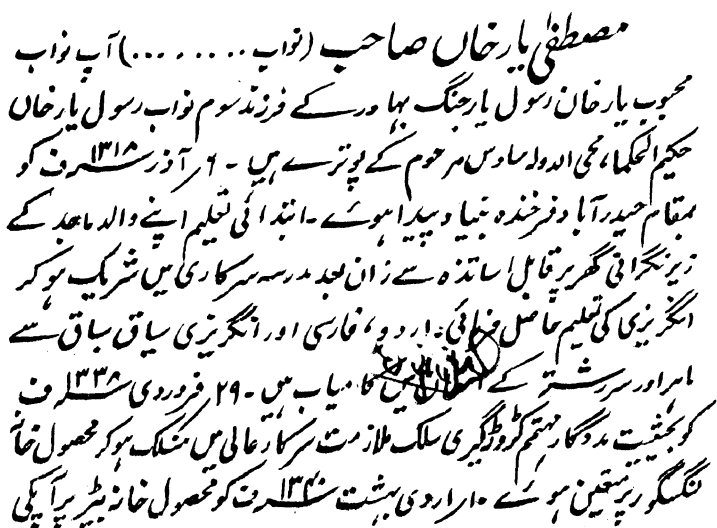 مصطفیٰ یار خاں صاحب (نواب ........) آپ نواب
محبوب یار خان رسول یار جنگ بہادر کے فرزند سوم نواب رسول یار خاں
حکیم الحکما، محی الدولہ سادس مرحوم کے پوترے ہیں ۔ ۶ آذر ۱۳۱۸ ف کو
بمقام حیدرآباد فرخندہ بنیاد پیدا ہوئے ۔ ابتدائی تعلیم اپنے والد ماجد کے
زیر نگرانی گھر پر قابل اساتذہ سے زان بعد مدرسہ سرکاری میں شریک ہو کر
انگریزی کی تعلیم حاصل فرمائی ۔ اردو، فارسی اور انگریزی سیاق سباق سے
ماہر اور سررشتہ کے میں کامیاب ہیں ۔ ۲۹ فروردی ۱۳۳۸ ف
کو بحیثیت مددگار مہتمم کروڑگیری سلک ملازمت سرکار عالی میں منسلک ہو کر محصول خانہ
لنگسگور پر متعین ہوئے ۔ ۱۰ اردی بہشت ۱۳۴۰ ف کو محصول خانہ بٹیر پر آپکی